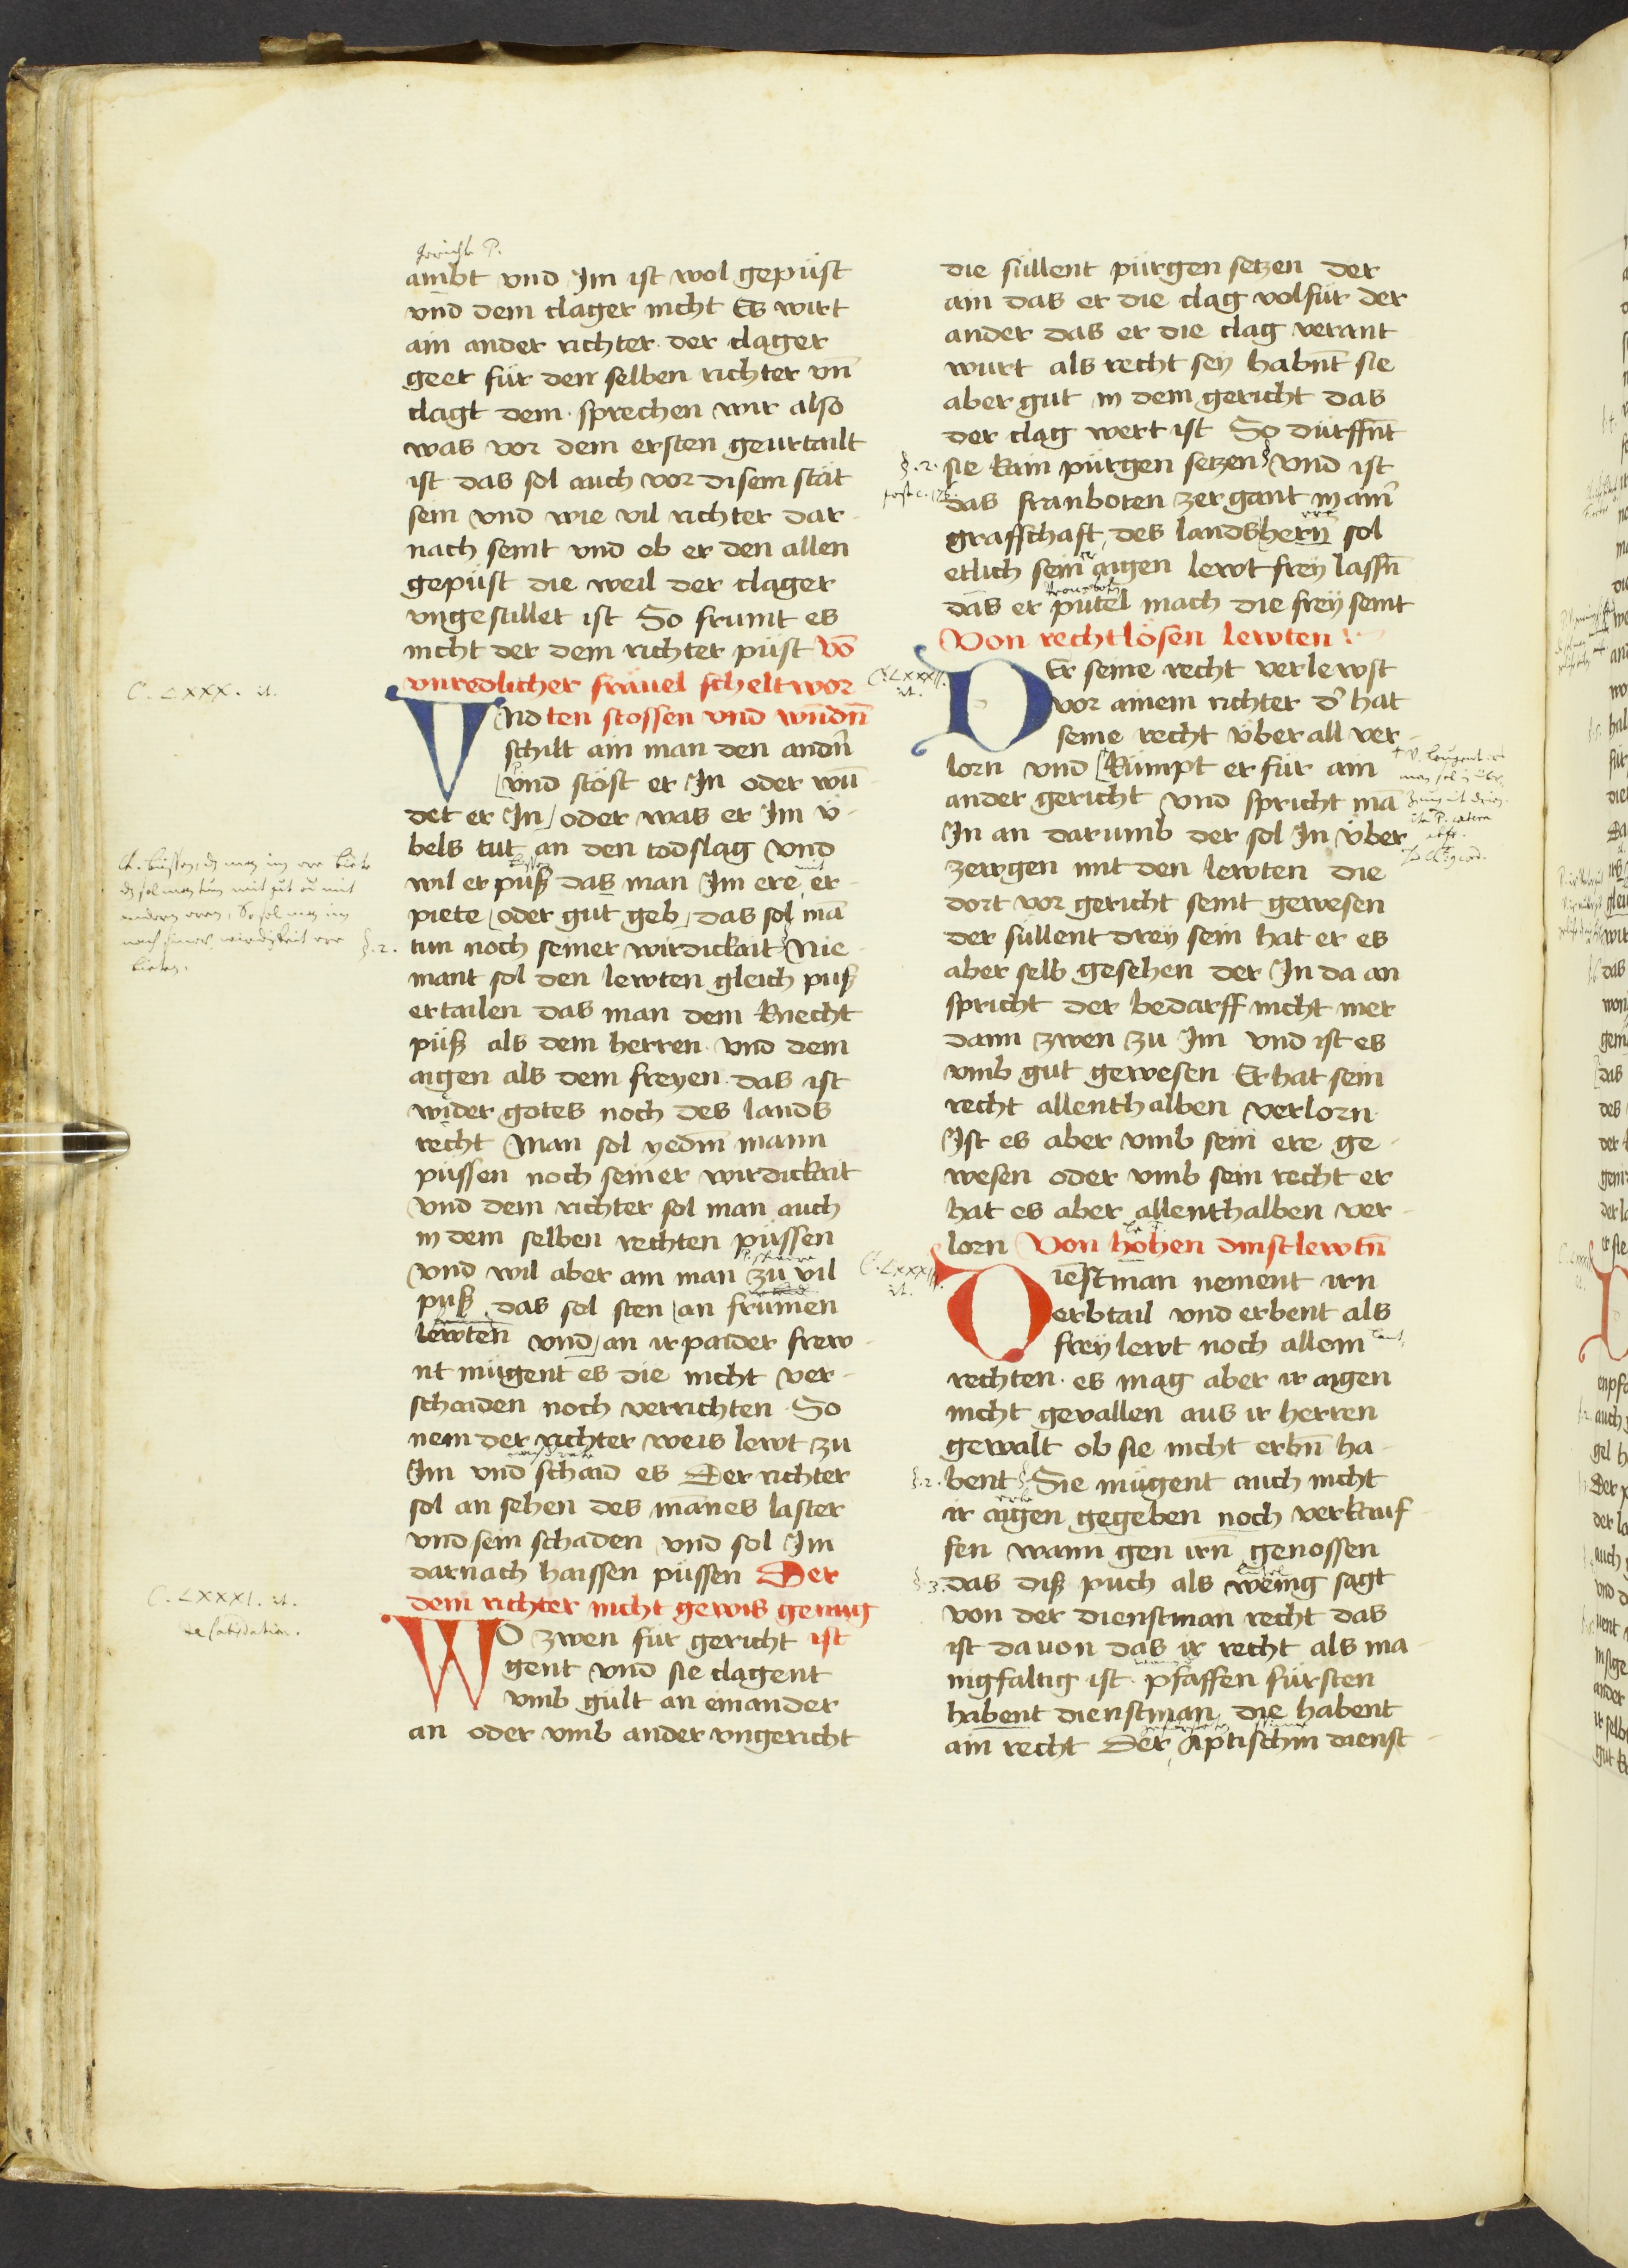 ambt vnd Im ist wol gepüst
vnd dem clager nicht Es wirt
ain ander richter der clager
geet für den selben richter vn̄
clagt dem sprechen wir also
was vor dem ersten geurtailt
ist das sol auch vor disem stät
sein vnd wie vil richter dar
nach seint vnd ob er den allen
gepüst die weil der clager
vngestillet ist So frumt es
nicht der dem richter püst Vō
vnredlicher fräuel scheltwor
VNd ten stossen vnd wūdn̄
schilt ain man den andn̄
vnd stöst er In oder wū
det er In oder was er Im v̈
bels tut an den todslag vnd
wil er puß das man Im ere er
piete oder gut geb das sol mā
tun noch seiner wirdickait Nie
mant sol den lewten gleich puß
ertailen das man dem knecht
püß als dem herren vnd dem
aigen als dem freyen das ist
wider gotes noch des lands
recht Man sol yedm̄ mann
püssen noch seiner wirdickait
vnd dem richter sol man auch
in dem selben rechten püssen
vnd wil aber ain man zu vil
puß das sol sten an frumen
lewten vnd an ir paider frew
nt mügent es die nicht ver
schaiden noch verrichten So
nem der richter weis lewt zu
Im vnd schaid es Der richter
sol an sehen des mānes laster
vnd sein schaden vnd sol Im
darnach haissen püssen Der
dem richter nicht gewis genug
WO zwen für gericht ist
gent vnd sie clagent
vmb gült an einander
an oder vmb ander vngericht
die süllent pürgen setzen der
ain das er die clag volfür der
ander das er die clag verant
wurt als recht sey habn̄t sie
aber gut in dem gericht das
der clag wert ist So dürffn̄t
§.2. sie kain pürgen setzen vnd ist
das franboten zergant in ainr̄
graffschaft des landshern̄ sol
etlich sein aigen lewt frey lassn̄
das er putel mach die frey seint
Von rechtlösen lewten
C. LXXXII.
DEr seine recht verlewst
vor ainem richter d' hat
seine recht v̈ber all ver
lorn vnd kumpt er für ain
ander gericht vnd spricht mā
In an darumb der sol In v̈ber
zewgen mit den lewten die
dort vor gericht seint gewesen
der süllent drey sein hat er es
aber selb gesehen der In da an
spricht der bedarff nicht mer
dann zwen zu Im vnd ist es
vmb gut gewesen Er hat sein
recht allenthalben verlorn
Ist es aber vmb sein ere ge
wesen oder vmb sein recht er
hat es aber allenthalben ver
lorn Von hohen dinstlewtn̄
Diestman nement irn
erbtail vnd erbent als
frey lewt noch allem
rechten es mag aber ir aigen
nicht geuallen aus ir herren
gewalt ob sie nicht erbn̄ ha
§.2. bent Sie mügent auch nicht
ir aigen gegeben noch verkauf
fen wann gen irn genossen
§.3. das diß puch als wenig sagt
von der dienstman recht das
ist dauon das ir recht als ma
nigfaltig ist pfaffen fürsten
habent dienstman die habent
ain recht Der Aptischin dienst
C. LXXX.
§.2.
C. LXXXI.